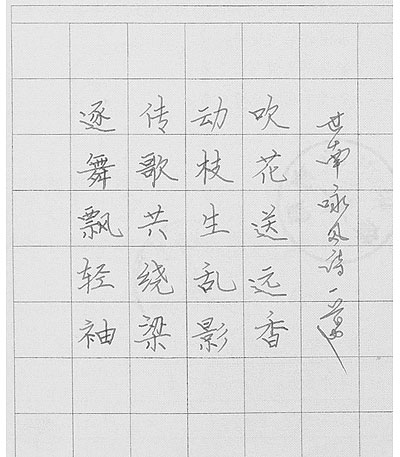 逐舞飘轻袖
传歌共绕梁
动枝生乱影
吹花送远香
世南咏风诗一